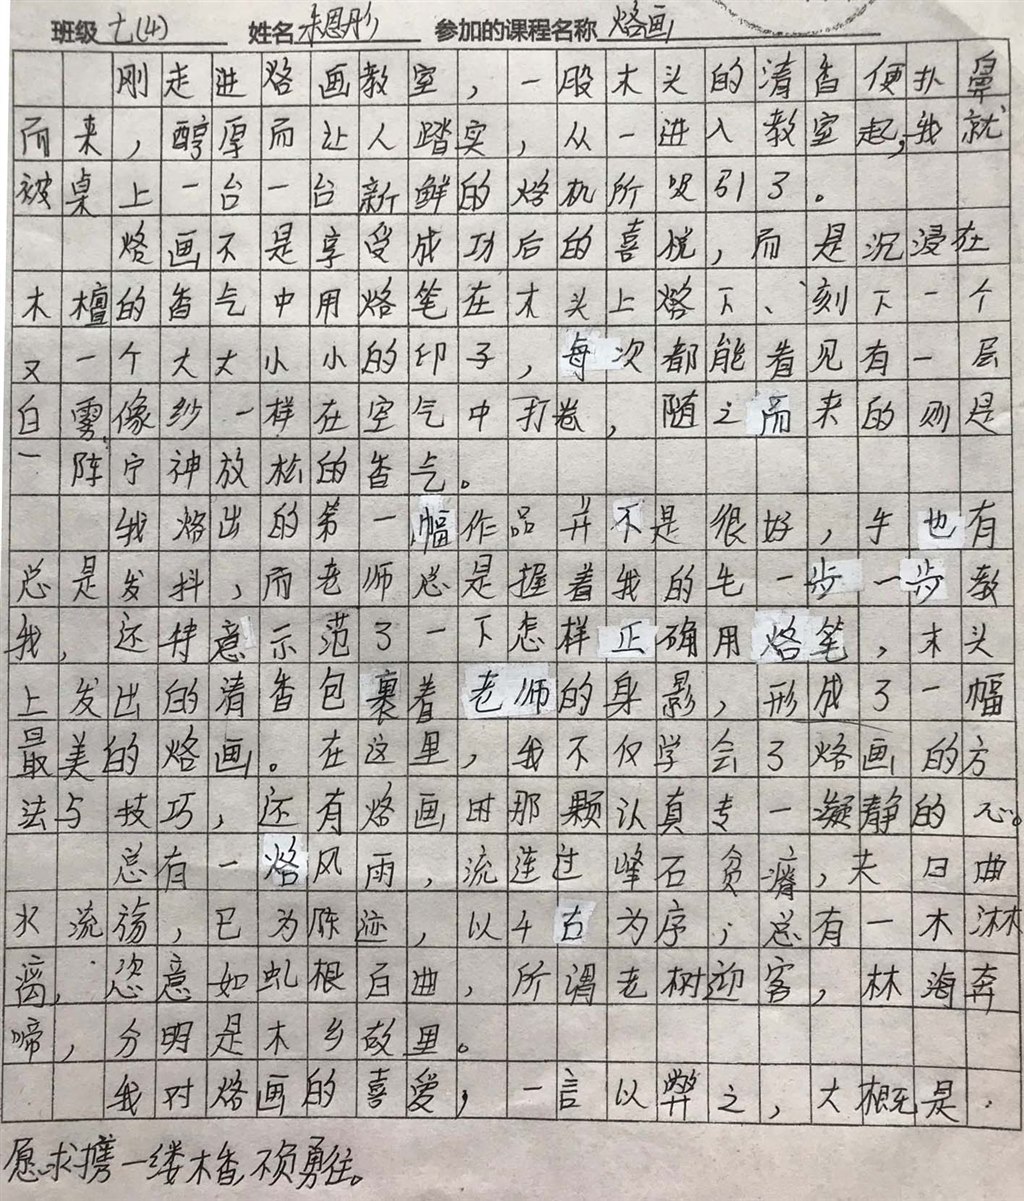 班级 七(4) 姓名 朱恩彤 参加的课程名称 烙画
刚走进烙画教室，一股木头的清香便扑鼻
而来，醇厚而让人踏实，从一进入教室起，我就
被桌上一台一台新鲜的烙机所吸引了。
烙画不是享受成功后的喜悦，而是沉浸在
木檀的香气中用烙笔在木头上烙下、刻下一个
又一个大大小小的印子，每次都能看见有一层
白雾像纱一样在空气中打卷，随之而来的则是
一阵宁神放松的香气。
我烙出的第一幅作品并不是很好，手也有
总是发抖，而老师总是握着我的手一步一步教
我，还特意示范了一下怎样正确用烙笔，木头
上发出的清香包裹着老师的身影，形成了一幅
最美的烙画。在这里，我不仅学会了烙画的方
法与技巧，还有烙画时那颗认真专一凝静的心。
总有一烙风雨，流连过峰石贫瘠，夫日曲
水流殇，已为陈迹，以4右为序；总有一木淋
漓，恣意如虬根百曲，所谓老树迎客，林海奔
啼，分明是木乡故里。
我对烙画的喜爱，一言以弊之，大概是
愿求携一缕木香，不负勇往。